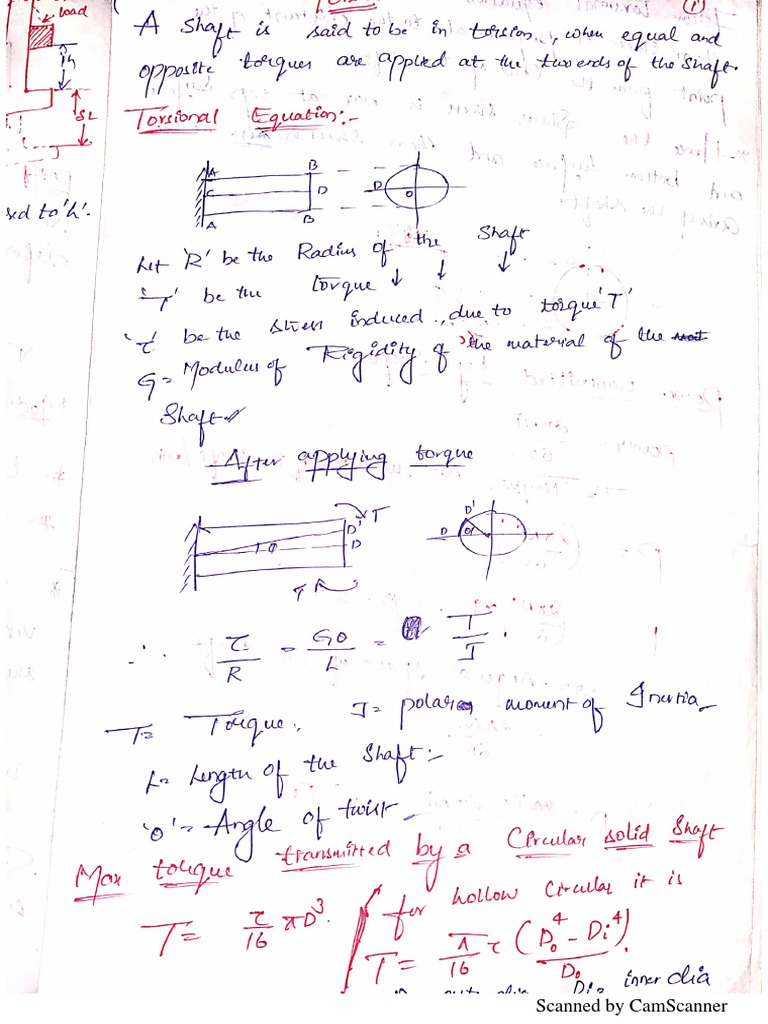 Load
h
δL
sed to 'h'.
①
A shaft is said to be in torsion, when equal and
opposite torques are applied at the two ends of the shaft.
Torsional Equation:-
A B
C D D O
A B
Let 'R' be the Radius of the Shaft
'T' be the torque ↓ ↓ ↓
'τ' be the stress induced, due to torque 'T'
G = Modulus of Rigidity of the material of the
Shaft
After applying torque
T D'
D' D θ
φ D
T
∴ τ/R = Gθ/L = T/J.
T = Torque, J = polar moment of Inertia
L = Length of the Shaft:-
'θ' = Angle of twist
Max torque transmitted by a Circular solid Shaft
T = τ/16 πD³. for hollow Circular it is
T = π/16 τ (Do⁴ - Di⁴)/Do.
Di = inner dia
Scanned by CamScanner